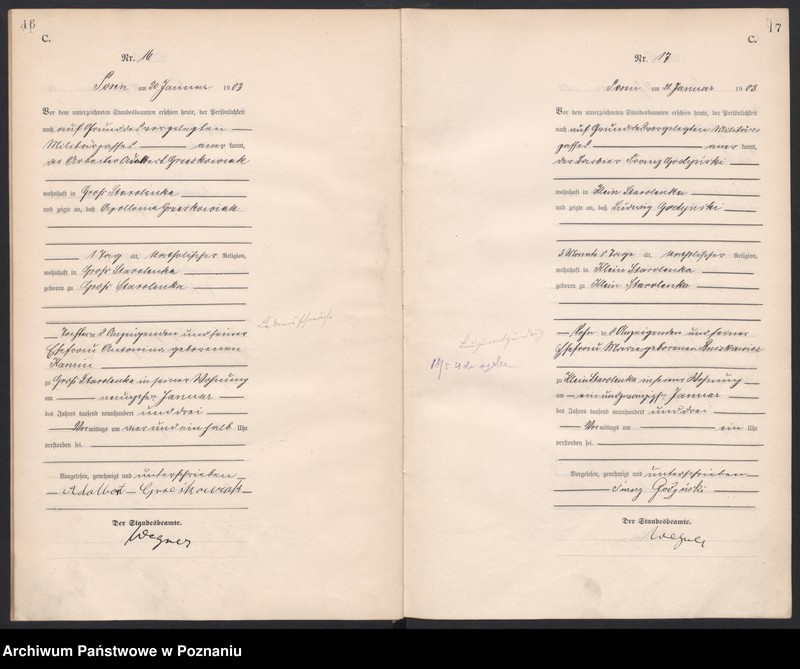 16
C.
Nr. 16
Posen am 20 Januar 1903
Vor dem unterzeichneten Standesbeamten erschien heute, der Persönlichkeit
nach auf Grund des vorgelegten
Militärpasses anerkannt,
der Arbeiter Adalbert Grzeskowiak
wohnhaft in Groß Starolenka
und zeigte an, daß Apollonia Grzeskowiak
1 Tag alt, katholischer Religion,
wohnhaft in Groß Starolenka
geboren zu Groß Starolenka
Tochter des Anzeigenden und seiner
Ehefrau Antonina geborenen
Kamin
zu Groß Starolenka in seiner Wohnung
am neunzehn Januar
des Jahres tausend neunhundert und drei
Vormittags um vier und ein halb Uhr
verstorben sei.
Vorgelesen, genehmigt und unterschrieben
Adalbert Grzeskowiak
Der Standesbeamte.
Wegner
Lebensschwäche
17
C.
Nr. 17
Posen am 21. Januar 1903.
Vor dem unterzeichneten Standesbeamten erschien heute, der Persönlichkeit
nach auf Grund des vorgelegten Militär-
passes anerkannt,
der Barbier Franz Godyński
wohnhaft in Klein Starolenka
und zeigte an, daß Ludwig Godyński
3 Monate 5 Tage alt, katholischer Religion,
wohnhaft in Klein Starolenka
geboren zu Klein Starolenka
Sohn des Anzeigenden und seiner
Ehefrau Maria geborenen
zu Klein Starolenka in seiner Wohnung
am einundzwanzigsten Januar
des Jahres tausend neunhundert und drei
Vormittags um ein Uhr
verstorben sei.
Vorgelesen, genehmigt und unterschrieben
Franz Godyński
Der Standesbeamte.
Wegner
Lungenentzündung
Archiwum Państwowe w Poznaniu